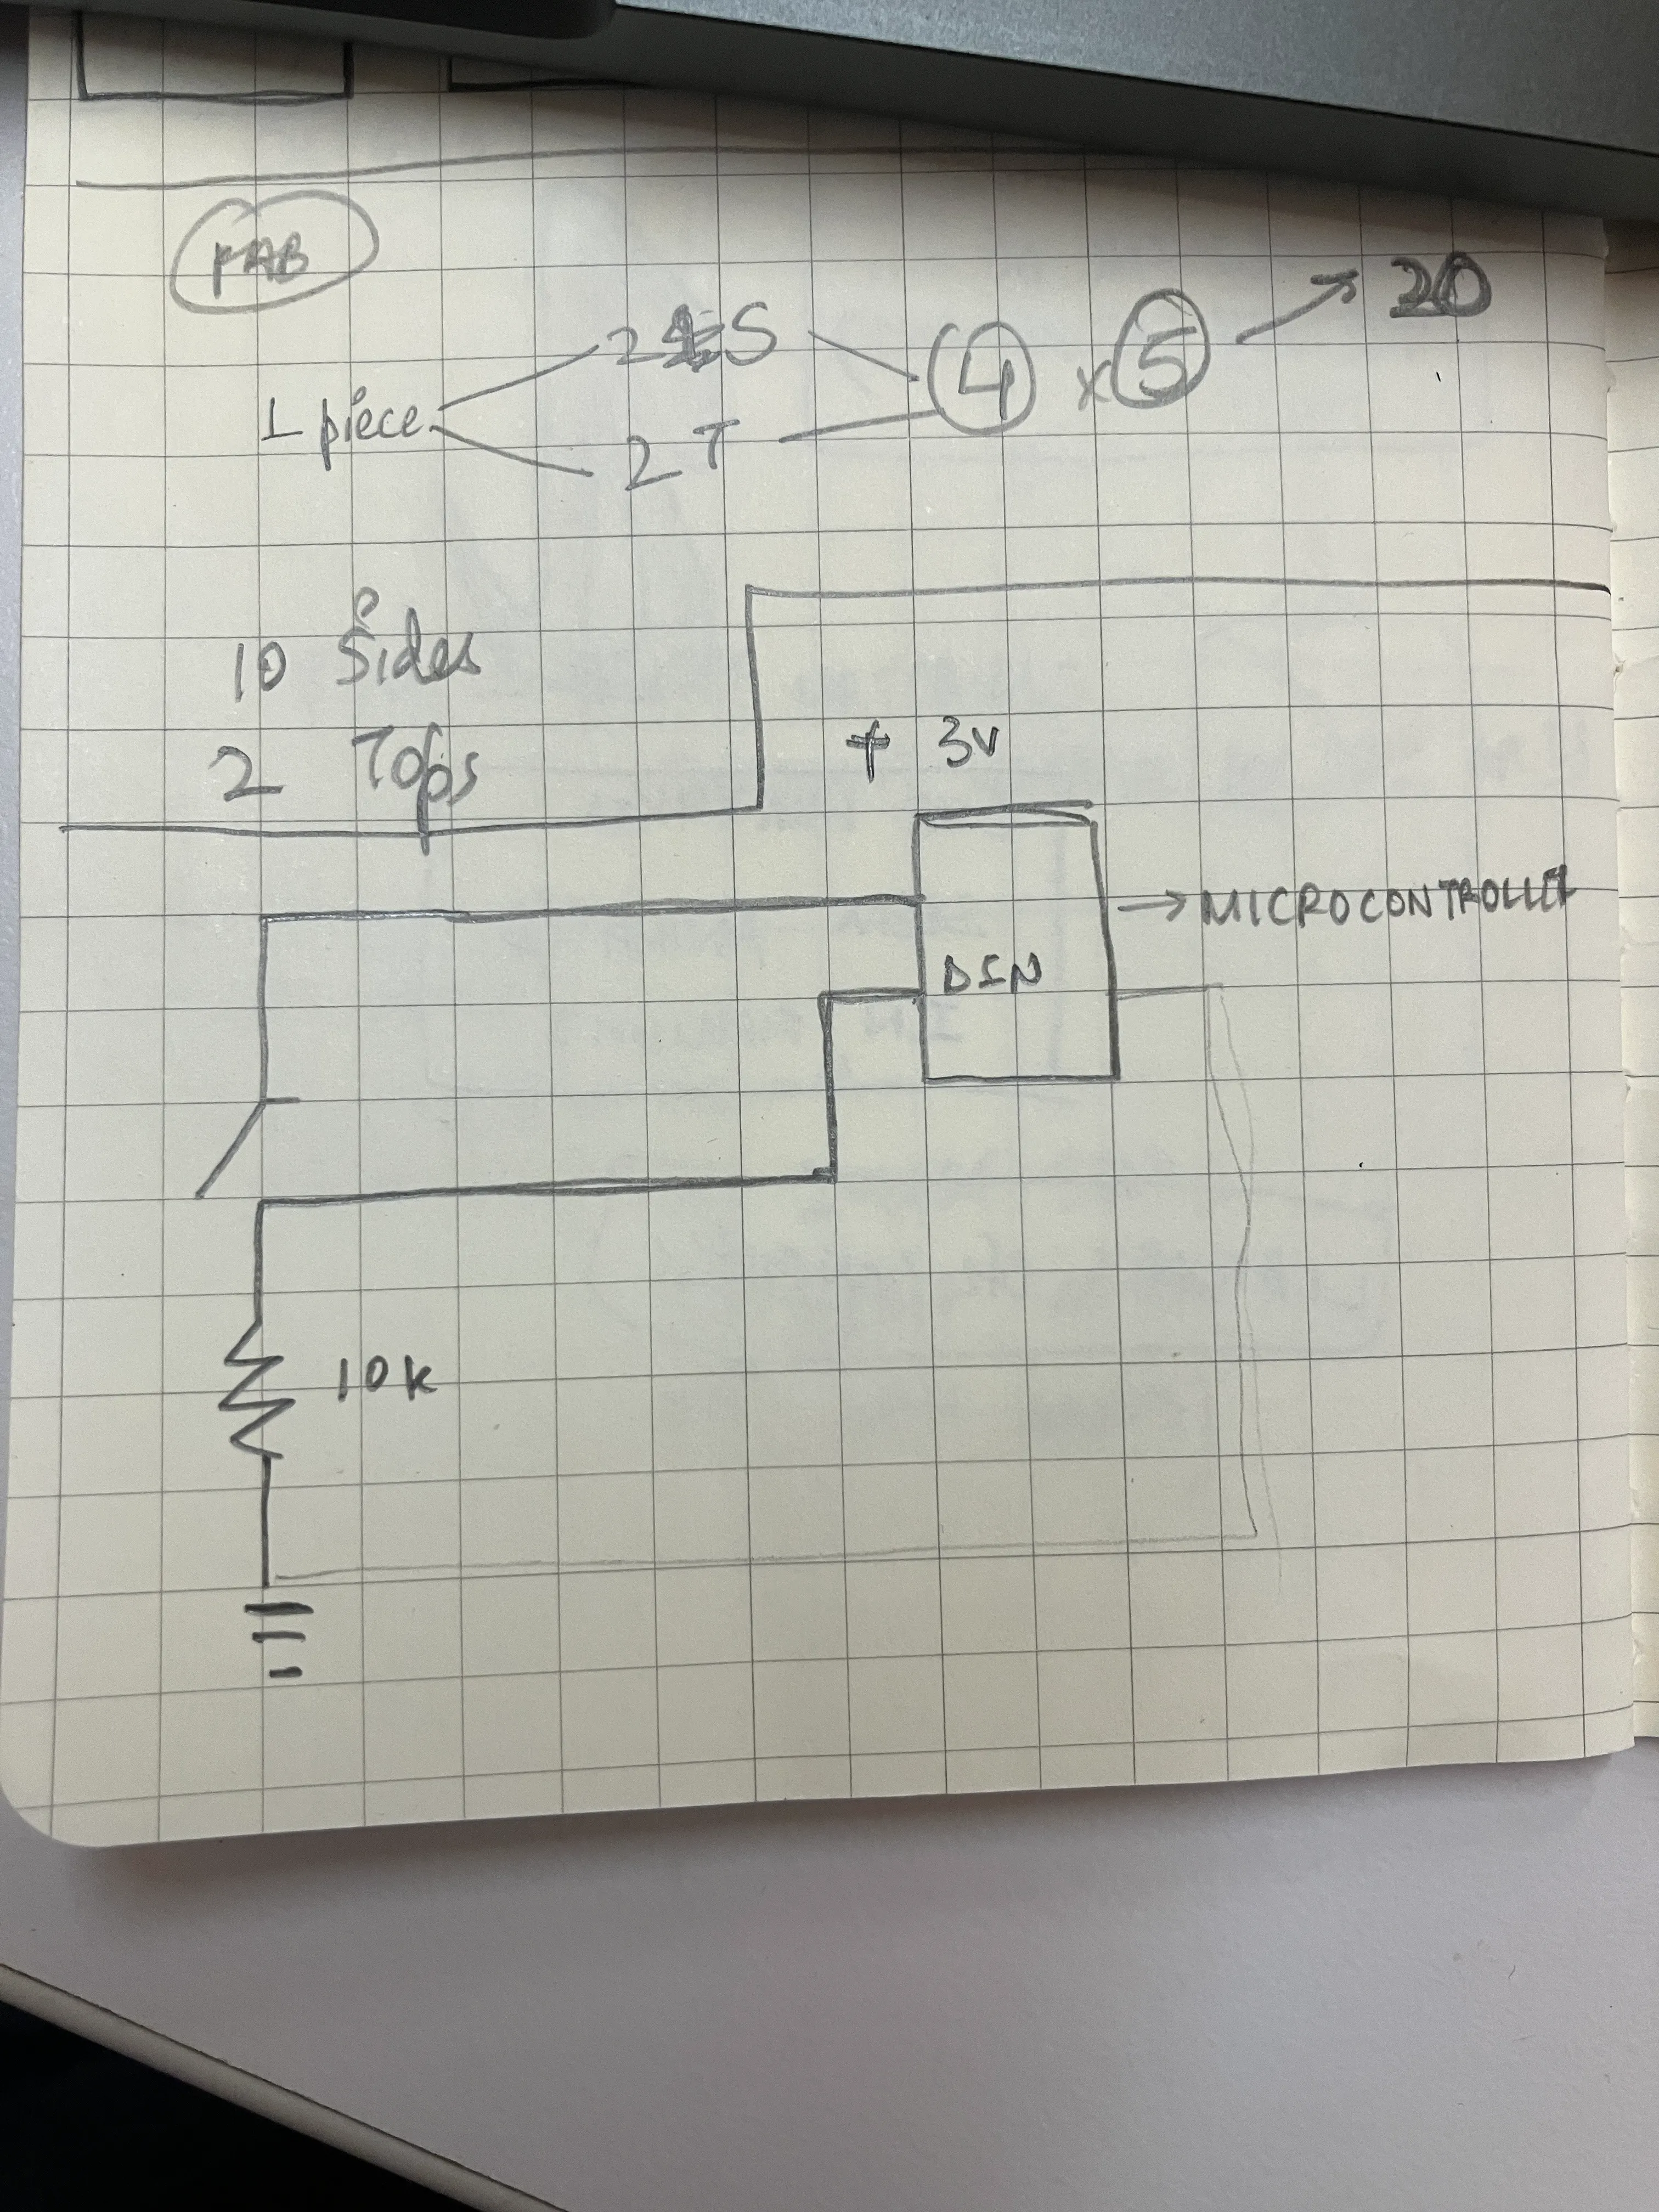 FAB
2 S
1 piece 4 x 5 20
2 T
10 Sides
2 Tops
+ 3V
MICROCONTROLLER
DIN
10k